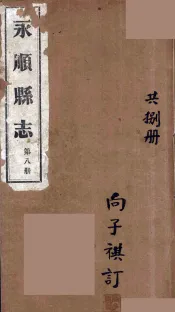 永順縣志
第八冊
共捌册
向子祺訂